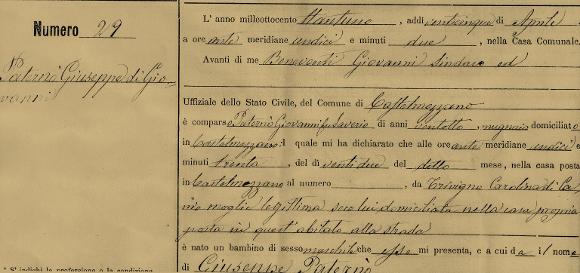 Numero 29
Paternò Giuseppe di Gio-
vanni
L' anno milleottocento ttantuno, addì venticinque di Aprile
a ore anti meridiane undici e minuti due, nella Casa Comunale.
Avanti di me Beneventi Giovanni Sindaco ed
Uffiziale dello Stato Civile, del Comune di Castelmezzano
è comparso Paternò Giovanni fu Saverio di anni ventotto, mugnaio domiciliato
in Castelmezzano il quale mi ha dichiarato che alle ore anti meridiane undici e
minuti trenta, del dì venti due del detto mese, nella casa posta
in Castelmezzano al numero , da Trivigno Carolina di Ca
nio moglie legittima seco lui domiciliata nella casa propria
posta in quest'abitato alla strada
è nato un bambino di sesso maschile che esso mi presenta, e a cui da il nome
di Giuseppe Paternò
* Si indichi la professione o la condizione